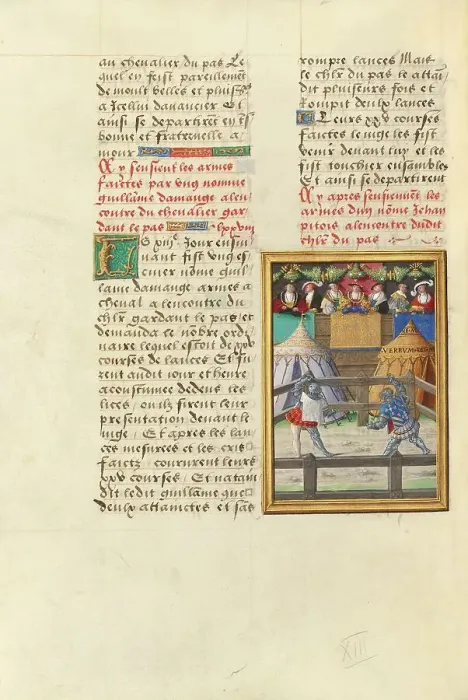 au chevalier du pas Le
quel en feist pareillement
de moult belles et plus
a Icelui danancier Et
ainsi se departirent en
bonne et fraternelle a
mour
Cy sensuient les armes
faictes par ung nomme
guillame damange alen
contre du chevalier gar
dant le pas
Es xiiie Jour ensui
uant fist ung es
cuier nomme guil
lame damange armes a
cheval a lencontre du
chlr gardant le pas et
demanda le nobre ordi
naire lequel estoit de xxv
courses de lances Et fu
rent audit iour et heure
acoustumee dedens les
lices ou ilz firent leur
presentation deuant le
iuge Et apres les lan
ces mesurees et les cris
faictz coururent leurs
xxv courses Et natain
dit ledit guillame que
deulx attainctes et sans
rompre lances Mais
le chlr du pas le attai
dit pluseurs fois et
Rompit deulx lances
Et Leurs xxv courses
faictes le iuge les fist
venir deuant luy et les
fist toucher ensambles
Et ainsi se departirent
Cy apres sensiuuent les
armes dun nome Jehan
pitois alencontre dudit
chlr du pas
VERBVM
XIII